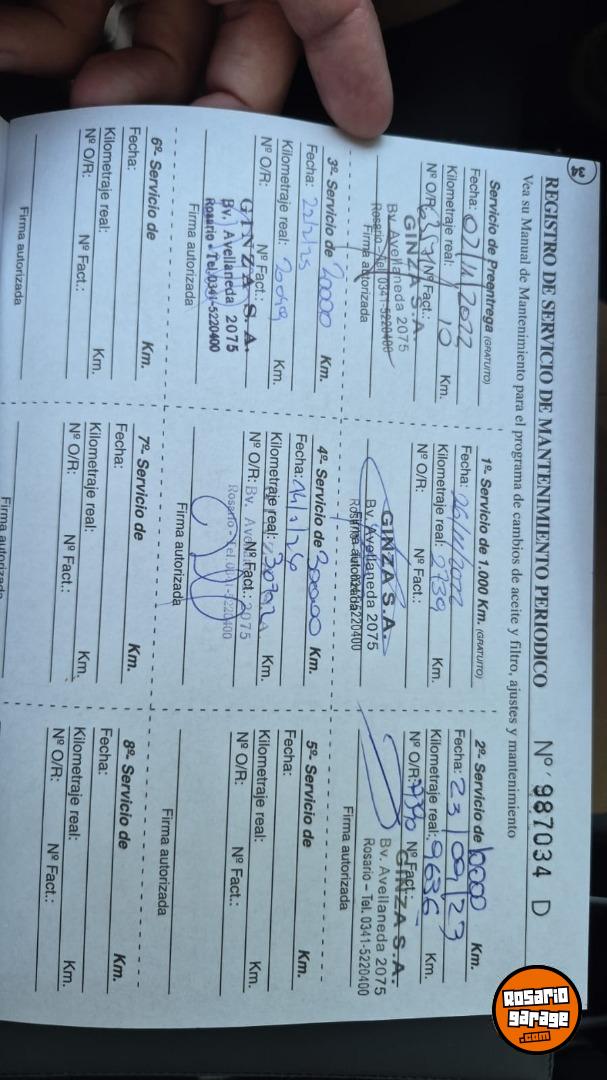 34
REGISTRO DE SERVICIO DE MANTENIMIENTO PERIODICO Nº 987034 D
Vea su Manual de Mantenimiento para el programa de cambios de aceite y filtro, ajustes y mantenimiento
Servicio de Preentrega (GRATUITO)
Fecha: 02/11/2022
Kilometraje real: 10 Km.
Nº O/R: Nº Fact.:
GINZA S.A.
Bv. Avellaneda 2075
Rosario - Tel. 0341-5220400
Firma autorizada
1º- Servicio de 1.000 Km. (GRATUITO)
Fecha: 26/11/2022
Kilometraje real: 2739 Km.
Nº O/R: Nº Fact.:
GINZA S.A.
Bv. Avellaneda 2075
Rosario - Tel. 0341-5220400
Firma autorizada
2º- Servicio de 10000 Km.
Fecha: 23/09/23
Kilometraje real: 9636 Km.
Nº O/R: Nº Fact.:
GINZA S.A.
Bv. Avellaneda 2075
Rosario - Tel. 0341-5220400
Firma autorizada
3º- Servicio de 20000 Km.
Fecha: 22/2/25
Kilometraje real: 20049 Km.
Nº O/R: Nº Fact.:
GINZA S. A.
Bv. Avellaneda 2075
Rosario - Tel. 0341-5220400
Firma autorizada
4º- Servicio de 30000 Km.
Fecha: 14/1/26
Kilometraje real: Km.
Nº O/R: Nº Fact.:
Bv. Avellaneda 2075
Rosario - Tel. 0341-5220400
Firma autorizada
5º- Servicio de Km.
Fecha:
Kilometraje real: Km.
Nº O/R: Nº Fact.:
Firma autorizada
6º- Servicio de Km.
Fecha:
Kilometraje real: Km.
Nº O/R: Nº Fact.:
Firma autorizada
7º- Servicio de Km.
Fecha:
Kilometraje real: Km.
Nº O/R: Nº Fact.:
Firma autorizada
8º- Servicio de Km.
Fecha:
Kilometraje real: Km.
Nº O/R: Nº Fact.:
Rosario
garage
.com